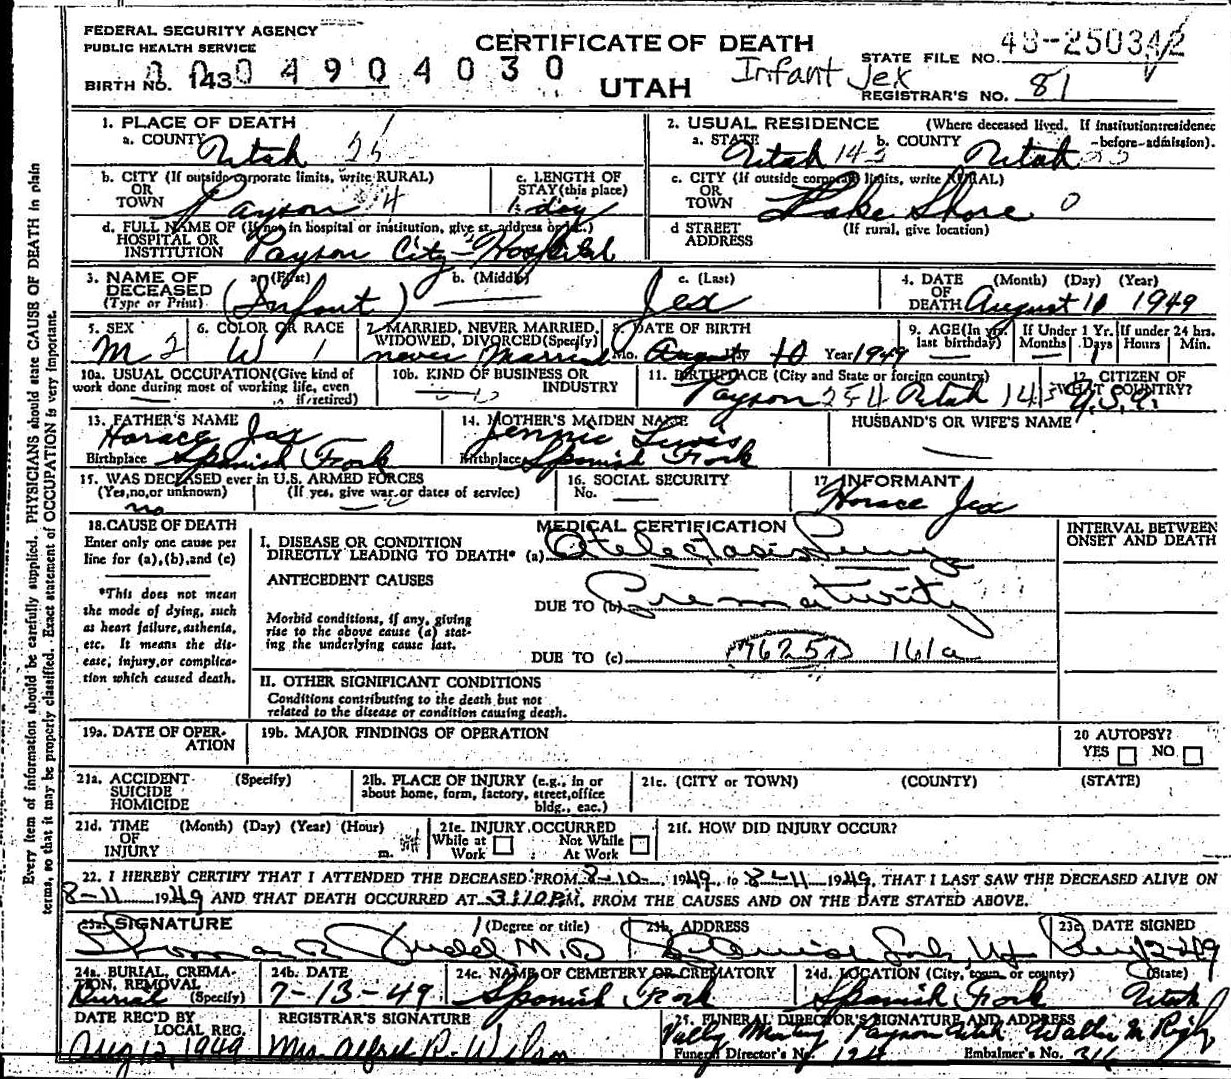 FEDERAL SECURITY AGENCY
PUBLIC HEALTH SERVICE
CERTIFICATE OF DEATH
STATE FILE NO.
BIRTH NO. 143 0004904030
UTAH
Infant Jex
REGISTRAR'S NO. 81
1. PLACE OF DEATH
a. COUNTY Utah 25
2. USUAL RESIDENCE (Where deceased lived. If institution:residence before-admission).
a. STATE Utah b. COUNTY Utah
b. CITY (If outside corporate limits, write RURAL)
OR
TOWN Payson 4
c. LENGTH OF
STAY (this place)
1 day
c. CITY (If outside corporate limits, write RURAL)
OR
TOWN Lake Shore 0
d. FULL NAME OF (If not in hospital or institution, give st. address or loc.)
HOSPITAL OR
INSTITUTION Payson City Hospital
d STREET
ADDRESS
(If rural, give location)
3. NAME OF
DECEASED
(Type or Print)
a. (First) (Infant)
b. (Middle)
c. (Last) Jex
4. DATE (Month) (Day) (Year)
OF
DEATH August 11 1949
5. SEX
M 2
6. COLOR OR RACE
W 1
7. MARRIED, NEVER MARRIED,
WIDOWED, DIVORCED(Specify)
never Married
8. DATE OF BIRTH
Mo. August Day 10 Year 1949
9. AGE(In yrs.
last birthday)
If Under 1 Yr.
Months Days
1
If under 24 hrs.
Hours Min.
10a. USUAL OCCUPATION(Give kind of
work done during most of working life, even
if retired)
10b. KIND OF BUSINESS OR
INDUSTRY
11. BIRTHPLACE (City and State or foreign country)
Payson 254 Utah
12. CITIZEN OF
WHAT COUNTRY?
U.S.A.
13. FATHER'S NAME
Horace Jex
Birthplace Spanish Fork
14. MOTHER'S MAIDEN NAME
Jennie Lewis
Birthplace Spanish Fork
HUSBAND'S OR WIFE'S NAME
15. WAS DECEASED ever in U.S. ARMED FORCES
(Yes,no,or unknown) (If yes, give war or dates of service)
no
16. SOCIAL SECURITY
No.
17 INFORMANT
Horace Jex
18.CAUSE OF DEATH
Enter only one cause per
line for (a),(b),and (c)
*This does not mean
the mode of dying, such
as heart failure,asthenia,
etc. It means the dis-
ease, injury,or complica-
tion which caused death.
MEDICAL CERTIFICATION
I. DISEASE OR CONDITION
DIRECTLY LEADING TO DEATH* (a)
ANTECEDENT CAUSES
DUE TO (b) Prematurity
Morbid conditions, if any, giving
rise to the above cause (a) stat-
ing the underlying cause last.
DUE TO (c) 161a
II. OTHER SIGNIFICANT CONDITIONS
Conditions contributing to the death but not
related to the disease or condition causing death.
INTERVAL BETWEEN
ONSET AND DEATH
19a. DATE OF OPER-
ATION
19b. MAJOR FINDINGS OF OPERATION
20 AUTOPSY?
YES NO
21a. ACCIDENT (Specify)
SUICIDE
HOMICIDE
21b. PLACE OF INJURY (e.g., in or
about home, form, factory, street,office
bldg., eac.)
21c. (CITY or TOWN) (COUNTY) (STATE)
21d. TIME (Month) (Day) (Year) (Hour)
OF
INJURY m.
21e. INJURY OCCURRED
While at Work
Not While At Work
21f. HOW DID INJURY OCCUR?
22. I HEREBY CERTIFY THAT I ATTENDED THE DECEASED FROM 8-10, 1949, to 8-11 1949, THAT I LAST SAW THE DECEASED ALIVE ON
8-11 1949 AND THAT DEATH OCCURRED AT 3:10 P.M. FROM THE CAUSES AND ON THE DATE STATED ABOVE.
23a. SIGNATURE (Degree or title)
M.D
23b. ADDRESS
23c DATE SIGNED
24a. BURIAL, CREMA-
TION, REMOVAL
Burial (Specify)
24b. DATE
7-13-49
24c. NAME OF CEMETERY OR CREMATORY
Spanish Fork
24d. LOCATION (City, town, or county) (State)
Spanish Fork Utah
DATE REC'D BY
LOCAL REG.
Aug 12, 1949
REGISTRAR'S SIGNATURE
Mrs. Alfred R. Wilson
25. FUNERAL DIRECTOR'S SIGNATURE AND ADDRESS
Payson Utah
Funeral Director's No. Embalmer's No.
Every item of information should be carefully supplied. PHYSICIANS should state CAUSE OF DEATH in plain
terms, so that it may be properly classified. Exact statement of OCCUPATION is very important.